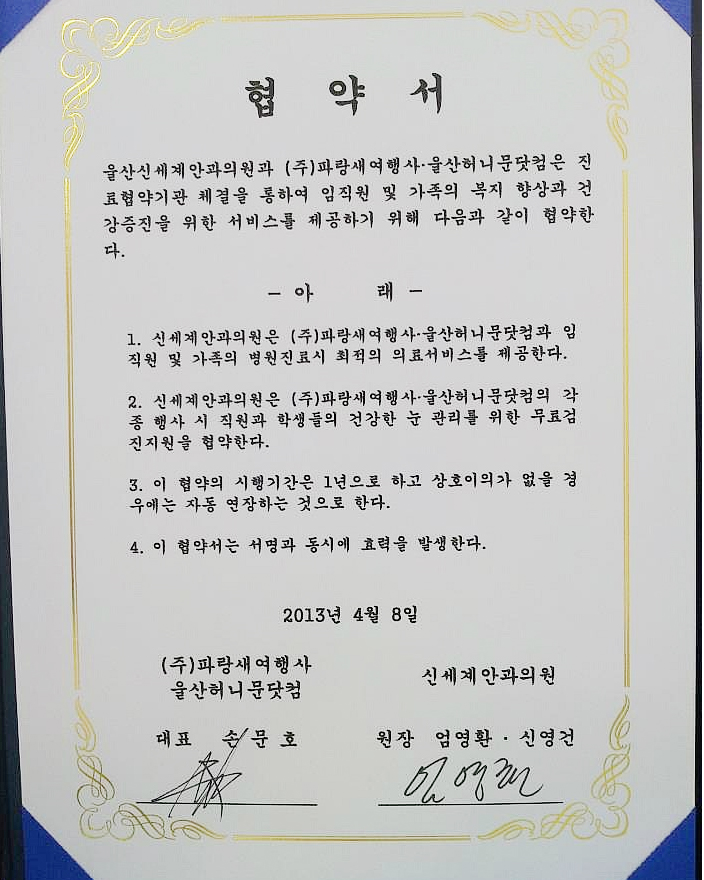 협 약 서
울산신세계안과의원과 (주)파랑새여행사·울산허니문닷컴은 진
료협약기관 체결을 통하여 임직원 및 가족의 복지 향상과 건
강증진을 위한 서비스를 제공하기 위해 다음과 같이 협약한
다.
- 아 래 -
1. 신세계안과의원은 (주)파랑새여행사·울산허니문닷컴과 임
직원 및 가족의 병원진료시 최적의 의료서비스를 제공한다.
2. 신세계안과의원은 (주)파랑새여행사·울산허니문닷컴의 각
종 행사 시 직원과 학생들의 건강한 눈 관리를 위한 무료검
진지원을 협약한다.
3. 이 협약의 시행기간은 1년으로 하고 상호이의가 없을 경
우에는 자동 연장하는 것으로 한다.
4. 이 협약서는 서명과 동시에 효력을 발생한다.
2013년 4월 8일
(주)파랑새여행사
울산허니문닷컴
신세계안과의원
대표 손문호
원장 엄영환·신영건
엄영환